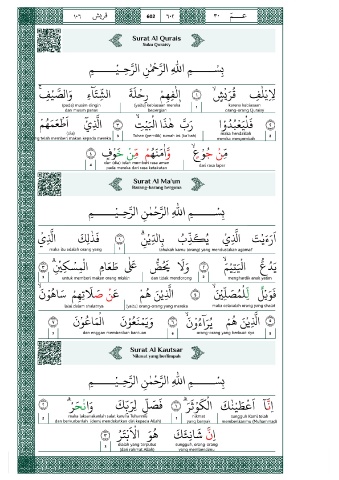 عمّ ٣٠ 602 ٦٠٢ قريش ١٠٦
Surat Al Qurais
Suku Quraisy
بِسْمِ اللّٰهِ الرَّحْمٰنِ الرَّحِيْمِ
لِاِيْلٰفِ قُرَيْشٍۙ ١ اٖلٰفِهِمْ رِحْلَةَ الشِّتَاۤءِ وَالصَّيْفِۚ ٢
karena kebiasaan orang-orang Quraisy 1 (yaitu) kebiasaan mereka bepergian (pada) musim dingin dan musim panas
فَلْيَعْبُدُوْا رَبَّ هٰذَا الْبَيْتِۙ ٣ الَّذِيْٓ اَطْعَمَهُمْ
maka hendaklah mereka menyembah Tuhan (pemilik) rumah ini (Ka'bah) (Dia) yang telah memberi makan kepada mereka
مِّنْ جُوْعٍ وَّاٰمَنَهُمْ مِّنْ خَوْفٍ ٤
dari rasa lapar dan (Dia) telah memberi rasa aman pada mereka dari rasa ketakutan
Surat Al Ma'un
Barang-barang berguna
بِسْمِ اللّٰهِ الرَّحْمٰنِ الرَّحِيْمِ
اَرَءَيْتَ الَّذِيْ يُكَذِّبُ بِالدِّيْنِۗ ١ فَذٰلِكَ الَّذِيْ
tahukah kamu (orang) yang mendustakan agama? maka itu adalah orang yang
يَدُعُّ الْيَتِيْمَۙ ٢ وَلَا يَحُضُّ عَلٰى طَعَامِ الْمِسْكِيْنِۗ ٣
menghardik anak yatim dan tidak mendorong untuk memberi makan orang miskin
فَوَيْلٌ لِّلْمُصَلِّيْنَۙ ٤ الَّذِيْنَ هُمْ عَنْ صَلَاتِهِمْ سَاهُوْنَۙ ٥
maka celakalah orang yang shalat (yaitu) orang-orang yang mereka lalai dalam shalatnya
الَّذِيْنَ هُمْ يُرَاۤءُوْنَۙ ٦ وَيَمْنَعُوْنَ الْمَاعُوْنَ ٧
orang-orang yang berbuat riya dan enggan memberikan bantuan
Surat Al Kautsar
Nikmat yang berlimpah
بِسْمِ اللّٰهِ الرَّحْمٰنِ الرَّحِيْمِ
اِنَّآ اَعْطَيْنٰكَ الْكَوْثَرَۗ ١ فَصَلِّ لِرَبِّكَ وَانْحَرْۗ ٢
sungguh Kami telah memberimu nikmat yang banyak maka laksanakanlah salat karena Tuhanmu dan berkurbanlah
اِنَّ شَانِئَكَ هُوَ الْاَبْتَرُ ٣
sungguh, orang-orang yang membencimu dialah yang terputus (dari rahmat Allah)